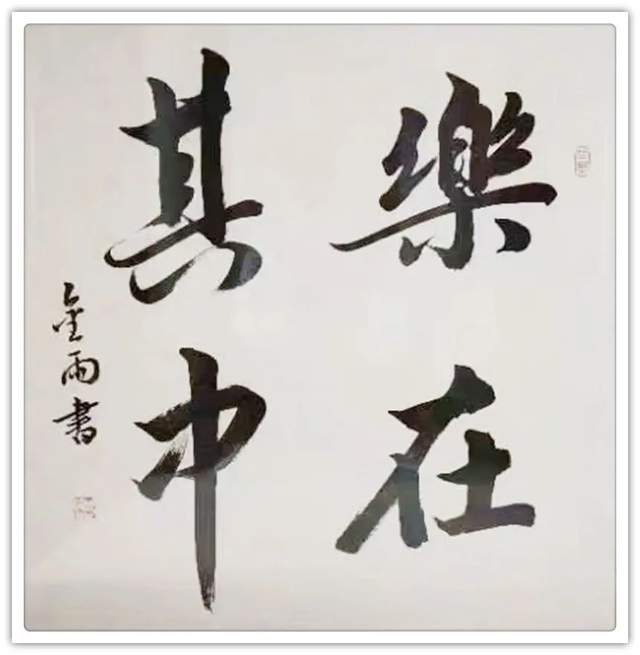 樂在
其中
金雨書